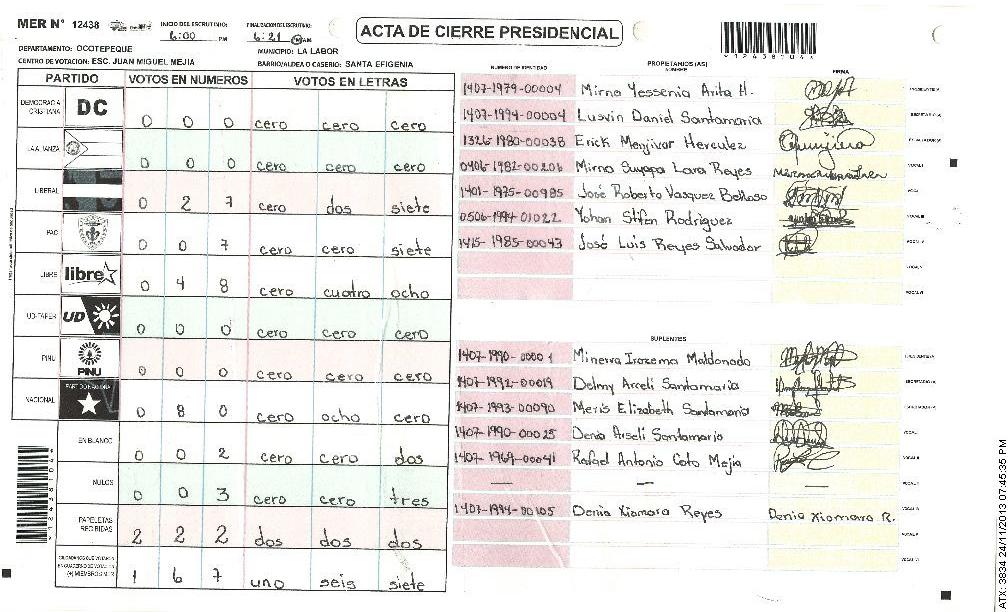 MER N° 12438 INICIO DEL ESCRUTINIO: 6:00 PM FINALIZACION DEL ESCRUTINIO: 6:21 PM ACTA DE CIERRE PRESIDENCIAL
DEPARTAMENTO: OCOTEPEQUE MUNICIPIO: LA LABOR
CENTRO DE VOTACION: ESC. JUAN MIGUEL MEJIA BARRIO/ALDEA O CASERIO: SANTA EFIGENIA
PARTIDO VOTOS EN NUMEROS VOTOS EN LETRAS
DEMOCRACIA CRISTIANA DC 0 0 0 cero cero cero
LA ALIANZA 0 0 0 cero cero cero
LIBERAL 0 2 7 cero dos siete
PAC 0 0 7 cero cero siete
LIBRE libre 0 4 8 cero cuatro ocho
UD-FAPER UD 0 0 0 cero cero cero
PINU PINU 0 0 0 cero cero cero
NACIONAL PARTIDO NACIONAL 0 8 0 cero ocho cero
EN BLANCO 0 0 2 cero cero dos
NULOS 0 0 3 cero cero tres
PAPELETAS RECIBIDAS 2 2 2 dos dos dos
CIUDADANOS QUE VOTARON EN CUADERNO DE VOTACION (+) MIEMBROS MER 1 6 7 uno seis siete
NUMERO DE IDENTIDAD PROPIETARIOS (AS) NOMBRE FIRMA
1407-1979-00004 Mirna Yessenia Arita H. PRESIDENTE/A
1407-1994-00004 Lusvin Daniel Santamaria SECRETARIO (A)
1326-1980-00038 Erick Menjivar Herculez ESCRUTADOR (A)
0406-1982-00206 Mirna Suyapa Lara Reyes VOCAL I
1401-1975-00985 José Roberto Vasquez Belloso
0506-1994-01022 Yohan Stifen Rodriguez VOCAL III
1415-1985-00043 José Luis Reyes Salvador VOCAL IV
VOCAL V
VOCAL VI
SUPLENTES
Minerva Irazema Maldonado PRESIDENTE/A
1407-1992-00019 Delmy Arceli Santamaria SECRETARIO (A)
1407-1993-00090 Meris Elizabeth Santamaria ESCRUTADOR (A)
1407-1990-00025 Denia Arseli Santamaria VOCAL I
1407-1969-00041 Rafael Antonio Coto Mejia VOCAL II
VOCAL III
1407-1994-00105 Denia Xiomara Reyes Denia Xiomara R. VOCAL IV
VOCAL V
VOCAL VI
ATX: 3834 24/11/2013 07:45:35 PM